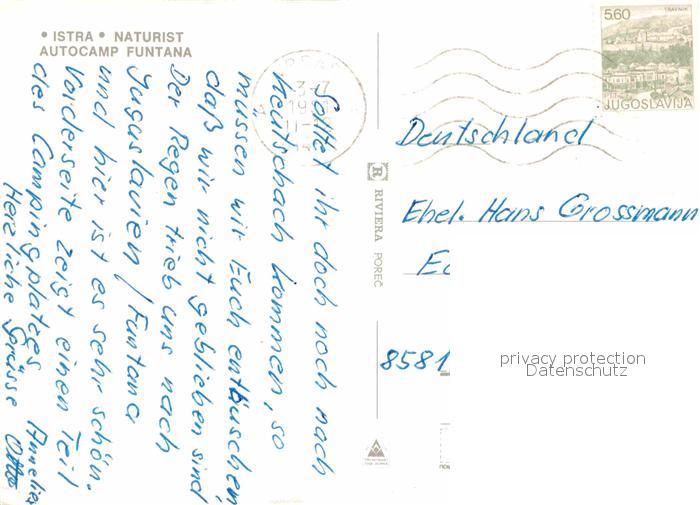 • ISTRA • NATURIST
AUTOCAMP FUNTANA
Solltet ihr doch noch nach
Keutschach kommen, so
müssen wir Euch enttäuschen,
daß wir nicht geblieben sind
Der Regen trieb uns nach
Jugoslavien / Funtana
und hier ist es sehr schön.
Vorderseite zeigt einen Teil
des Campingplatzes
Herzliche Grüsse Otto
Annelies
RIVIERA POREČ
5,60
TRAVNIK
JUGOSLAVIJA
Deutschland
Ehel. Hans Grossmann
8581
privacy protection
Datenschutz